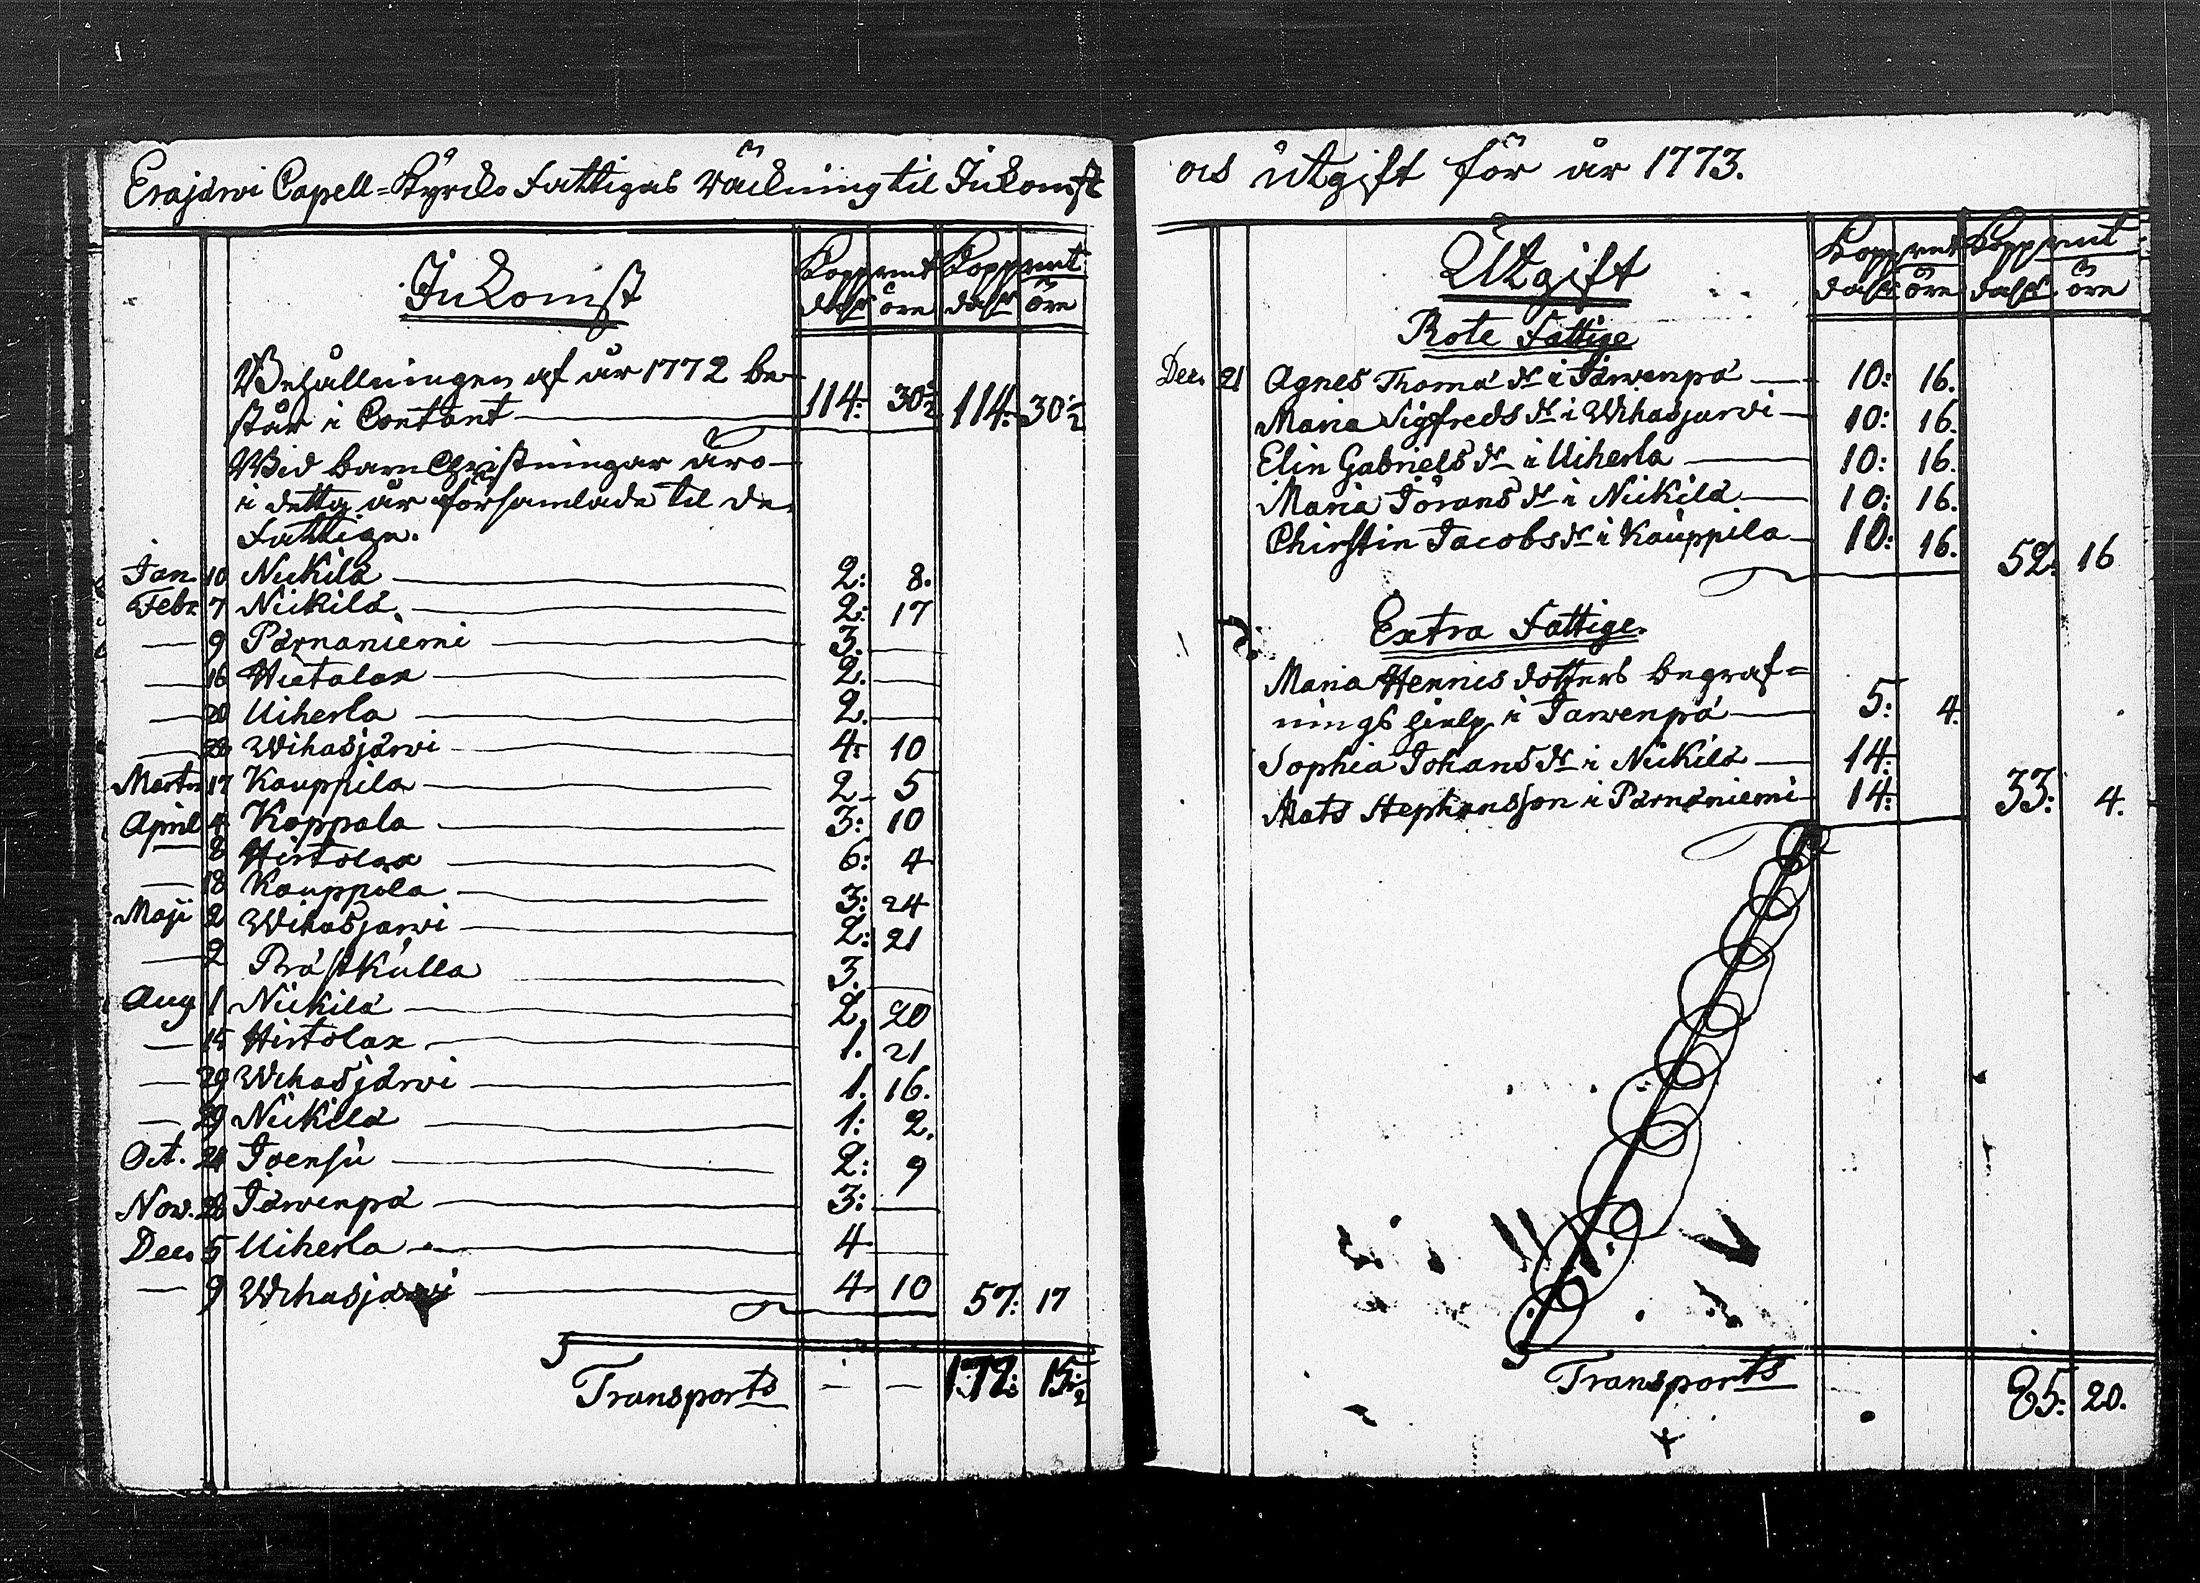 Erajärwi Capell=Kyrcko Fattigas räckning til Inkomst
Inkomst
Koppmt Koppmt
dalr öre dalr öre
Behållningen af år 1772 be-
står i Contant 114: 30½ 114: 30½
Wid barn Christningar äro
i detta år församlade til de
Fattige.
Jan. 10 Niikilä 2: 8.
Febr. 7 Niikilä 2: 17
— 9 Pärnäniemi 3. —
— 16 Hietalax 2. —
— 20 Uiherla 2. —
— 28 Wihasjärwi 4: 10
Martii 17 Kauppila 2 5
April 4 Koppala 3: 10
— 8 Hirtolax 6: 4
— 18 Kauppila 3: 24
Maji 2 Wihasjärwi 2: 21
— 2 Prästkulla 3. —
Aug. 1 Niikilä 2. 20
— 15 Hirtolax 1. 21
— 29 Wihasjärwi 1. 16.
— 29 Niikilä 1: 2.
Oct. 24 Joensu 2: 9
Nov. 28 Järwenpä 3: —
Dec. 5 Uiherla 4 —
— 9 Wihasjärwi 4 10 57: 17
Transports — — 172: 15½
och Utgift för år 1773.
Utgift
Koppmt Koppmt
dalr öre dalr öre
Rote Fattige
Dec. 21 Agnes Thomä dr i Järwenpä 10: 16.
Maria Sigfreds dr i Wihasjärwi 10: 16.
Elin Gabriels dr i Uiherla 10: 16.
Maria Jörans dr i Niikilä 10: 16.
Chirstin Jacobs dr i Kauppila 10: 16. 52: 16
Extra Fattige.
Maria Hennes dotters begraf=
nings hielp i Järwenpä 5: 4.
Sophia Johans dr i Niikilä 14:
Mats Stephansson i Pärnäniemi 14: 33: 4.
Transports 85: 20.